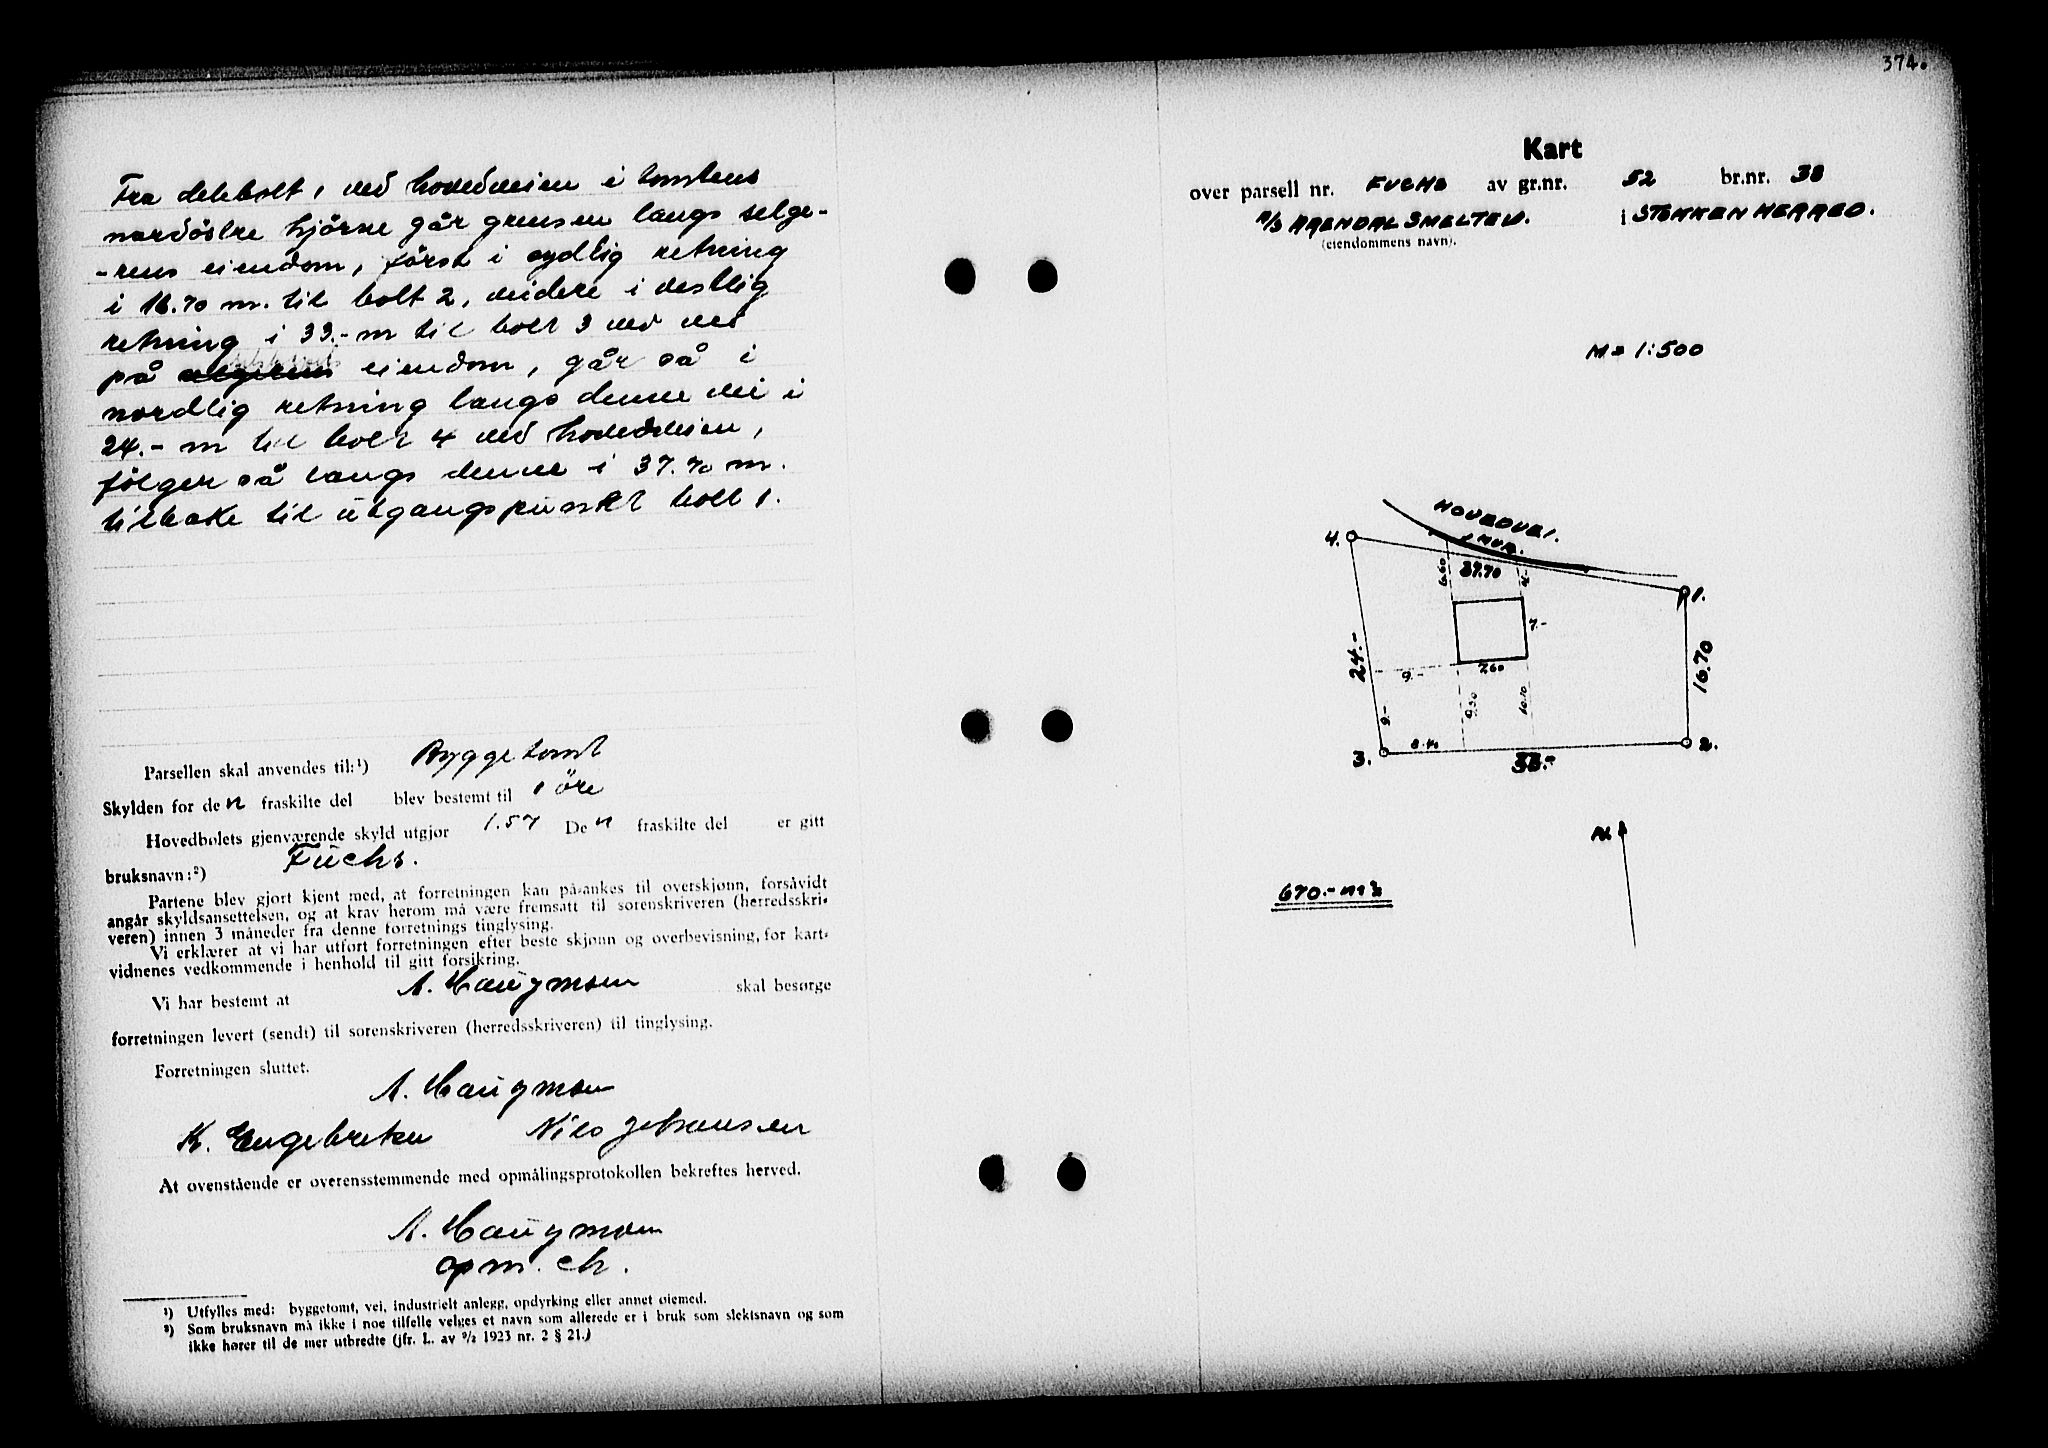 Fra delebolt 1 ved hovedveien i tomtens
nordöstre hjörne går grensen langs selge-
-rens eiendom, først i sydlig retning
i 16.70 m. til bolt 2, videre i vestlig
retning i 33.- m til bolt 3 ved vei
på eiendom, går så i
nordlig retning langs denne vei i
24.- m til bolt 4 ved hovedveien,
følger så langs denne i 37.70 m.
tilbake til utgangspunkt bolt 1.
Parsellen skal anvendes til:¹) Byggetomt
Skylden for den fraskilte del blev bestemt til 1 öre
Hovedbølets gjenværende skyld utgjør 1.57 Den fraskilte del er gitt
bruksnavn:²) Fuchs.
Partene blev gjort kjent med, at forretningen kan påankes til overskjønn, forsåvidt
angår skyldsansettelsen, og at krav herom må være fremsatt til sorenskriveren (herredsskri-
veren) innen 3 måneder fra denne forretnings tinglysing.
Vi erklærer at vi har utført forretningen efter beste skjønn og overbevisning, for kart-
vidnenes vedkommende i henhold til gitt forsikring.
Vi har bestemt at A. Haugmoen skal besørge
forretningen levert (sendt) til sorenskriveren (herredsskriveren) til tinglysing.
Forretningen sluttet.
A. Haugmoen
K. Engebretsen Nils Johansen
At ovenstående er overensstemmende med opmålingsprotokollen bekreftes herved.
A. Haugmoen
opm. ch.
¹) Utfylles med: byggetomt, vei, industrielt anlegg, opdyrking eller annet øiemed.
²) Som bruksnavn må ikke i noe tilfelle velges et navn som allerede er i bruk som slektsnavn og som
ikke hører til de mer utbredte (jfr. L. av ⁹/₂ 1923 nr. 2 § 21.)
374.
Kart
over parsell nr. FUCHS av gr.nr. 52 br.nr. 38
A/S ARENDAL SMELTEV. i STOKKEN HERRED.
(eiendommens navn).
M = 1:500
HOVEDVEI.
MUR.
4.
6.60
37.70
4.-
1.
7.-
24.-
16.70
9.-
7.60
9.-
9.50
10.10
3.
8.40
33.-
2.
N.
670.- m²